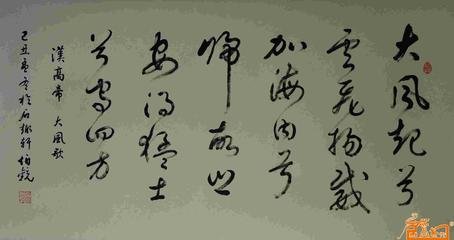 大風起兮
雲飛揚威
加海内兮
歸故鄉
安得猛士
兮守四方
漢高帝 大風歌
己丑